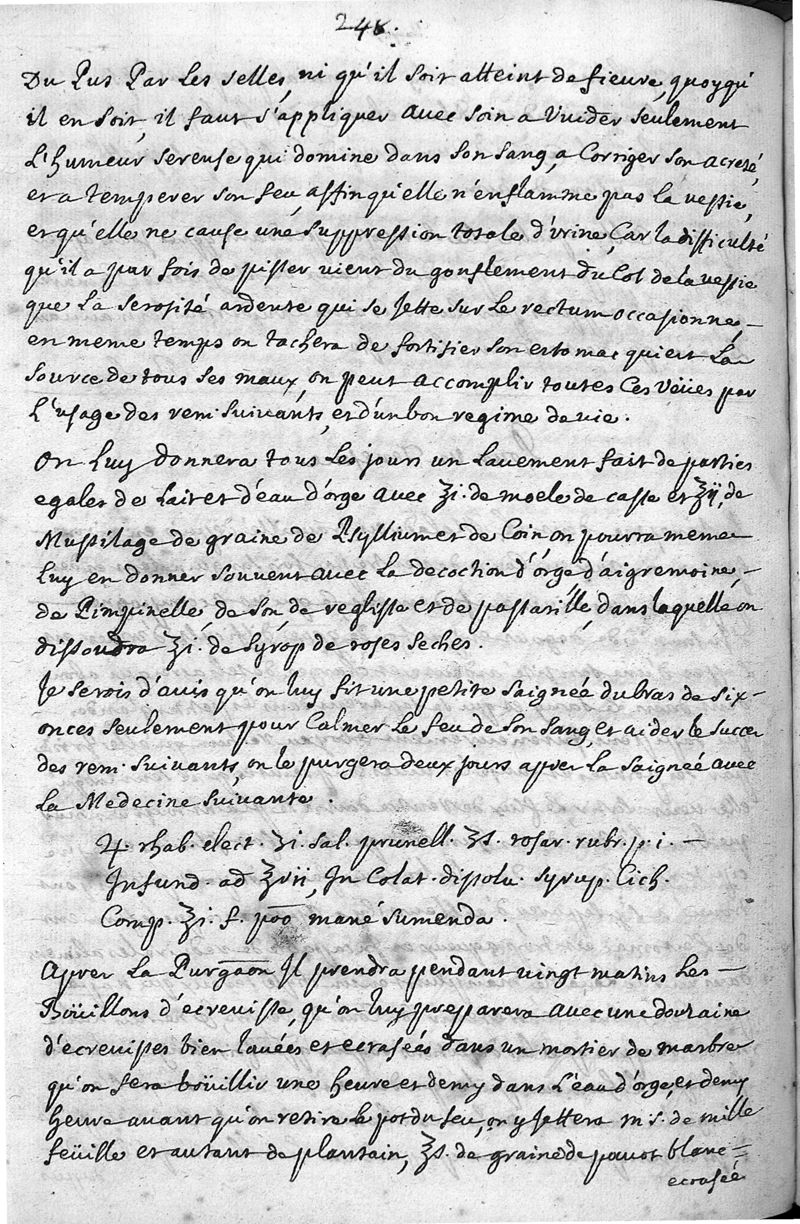 248.
Du Pus Par Les selles, ni qu'il soit atteint de fieure, quoyqu'
il en soit, il faut s'appliquer avec soin a Vuider seulement
L'humeur sereuse qui domine dans son sang, a Corriger son acreté,
et a temperer son feu, affin qu'elle n'enflamme pas la vessie,
et qu'elle ne cause une suppression totale d'vrine, Car la difficulté
qu'il a par fois de pisser vient du gonflement du Col de la vessie
que La serosité ardente qui se Jette sur Le rectum occasionne, –
en meme temps on tachera de fortifier son estomac qui est La
source de tous ses maux, on peut accomplir toutes Ces Vëües par
L'usage des rem. suivants, et d'un bon regime de vie.
On Luy donnera tous Les jours un Lavement fait de parties
egales de Lait et d'eau d'orge avec ℥i. de moele de casse et ℥ij, de
Mussilage de graine de Psyllium et de Coin on pourra meme
Luy en donner souvent avec La decoction d'orge d'aigremoine, –
de Pimpinelle, de son, de reglisse et de passarille, dans laquelle on
dissoudra ℥i. de syrop de roses seches.
Je serois d'avis qu'on luy fit une petite saignée du bras de six –
onces seulement pour Calmer Le feu de son sang, et aider le succez
des rem. suivants, on le purgera deux jours aprez La saignée avec
La Medecine suivante.
♃. rhab. elect. ʒi. sal. prunell. ʒs. rosar. rubr. p. i. –
Infund. ad ℥vii, In Colat. dissolu. syrup. Cich.
Comp. ℥i. f. poō mané sumenda.
Aprez La Purgaōn Il prendra pendant vingt matins Les –
Boüillons d'ecrevisse, qu'on luy preparera avec une douzaine
d'ecrevisses bien lauées et ecrasées dans un mortier de marbre
qu'on fera boüillir une heure et demy dans L'eau d'orge, et demy
heure avant qu'on retire le pot du feu, on y Jettera m. s. de mille
feüille et autant de plantain, ʒs. de graine de pavot blanc =
ecrasée